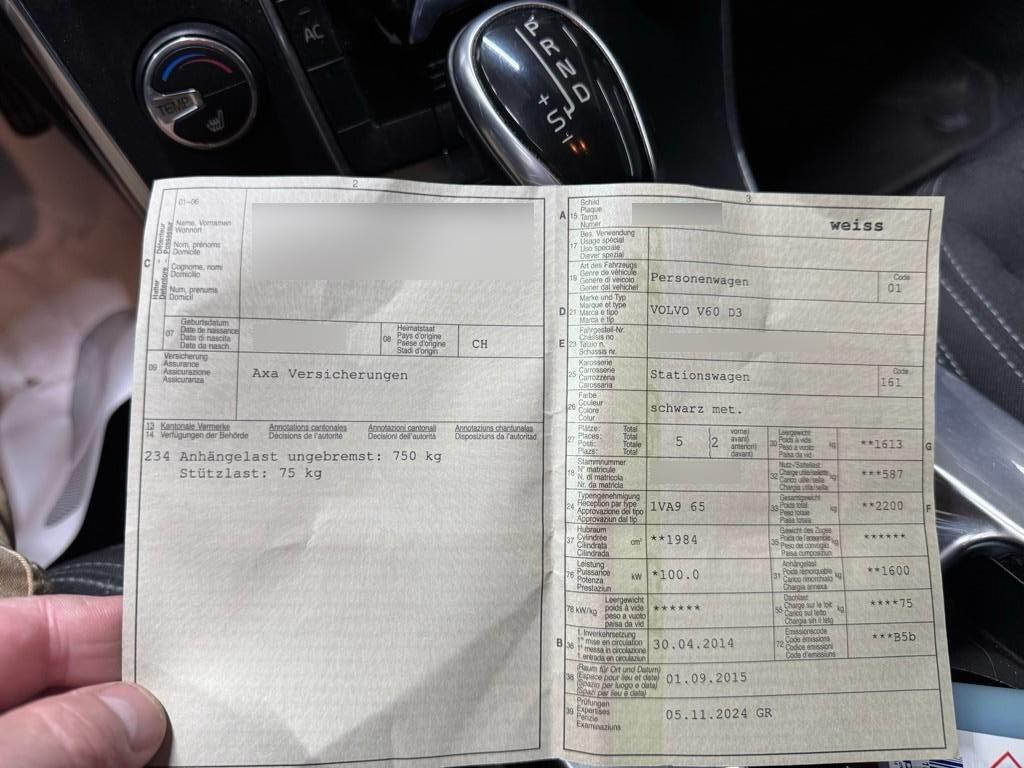 AC
TEMP
P
R
N
D
+
S
-
2
01-06
Haber
Détenteur
Detentore
Possessur
C
Name, Vornamen
Wohnort
Nom, prénoms
Domicile
Cognome, nomi
Domicilio
Num, prenums
Domicil
07
Geburtsdatum
Date de naissance
Data di nascita
Data da nasch.
08
Heimatstaat
Pays d'origine
Paese d'origine
Stadi d'origin
CH
09
Versicherung
Assurance
Assicurazione
Assicuranza
Axa Versicherungen
13 Kantonale Vermerke Annotations cantonales Annotazioni cantonali Annotaziuns chantunalas
14 Verfügungen der Behörde Décisions de l'autorité Decisioni dell'autorità Disposiziuns da l'autoritad
234 Anhängelast ungebremst: 750 kg
Stützlast: 75 kg
3
A 15
Schild
Plaque
Targa
Numer
weiss
17
Bes. Verwendung
Usage spécial
Uso speciale
Diever spezial
19
Art des Fahrzeugs
Genre de véhicule
Genere di veicolo
Gener dal vehichel
Personenwagen
Code
01
D 21
Marke und Typ
Marque et type
Marca e tipo
Marca e tip
VOLVO V60 D3
E 23
Fahrgestell-Nr.
Châssis no
Telaio n.
Schassis nr.
25
Karosserie
Carrosserie
Carrozzeria
Carossaria
Stationswagen
Code
161
26
Farbe
Couleur
Colore
Colur
schwarz met.
27
Plätze: Total
Places: Total
Posti: Totale
Plazs: Total
5
2
vorne)
avant)
anteriori)
davant)
30
Leergewicht
Poids à vide
Peso a vuoto
Paisa da vid
kg
**1613
G
18
Stammnummer
N° matricule
N. di matricola
Nr. da matricla
32
Nutz-/Sattellast
Charge utile/sellette
Carico utile/sella
Chargia utila/sella
kg
***587
24
Typengenehmigung
Réception par type
Approvazione del tipo
Approvaziun dal tip
1VA9 65
33
Gesamtgewicht
Poids total
Peso totale
Paisa totala
kg
**2200
F
37
Hubraum
Cylindrée
Cilindrata
Cilindrada
cm³
**1984
35
Gewicht des Zuges
Poids de l'ensemble
Peso del convoglio
Paisa cumposiziun
kg
******
76
Leistung
Puissance
Potenza
Prestaziun
kW
*100.0
31
Anhängelast
Poids remorquable
Carico rimorchiato
Chargia annexa
kg
**1600
78 kW/kg
Leergewicht
poids à vide
peso a vuoto
paisa da vid
******
55
Dachlast
Charge sur le toit
Carico sul tetto
Chargia sin il tetg
kg
****75
B 36
1. Inverkehrsetzung
1re mise en circulation
1a messa in circolazione
1. entrada en circulaziun
30.04.2014
72
Emissionscode
Code émissions
Codice emissioni
Code d'emissiuns
***B5b
38
(Raum für Ort und Datum)
(Espace pour lieu et date)
(Spazio per luogo e data)
(Spazi per lieu e data)
01.09.2015
39
Prüfungen
Expertises
Perizie
Examinaziuns
05.11.2024 GR